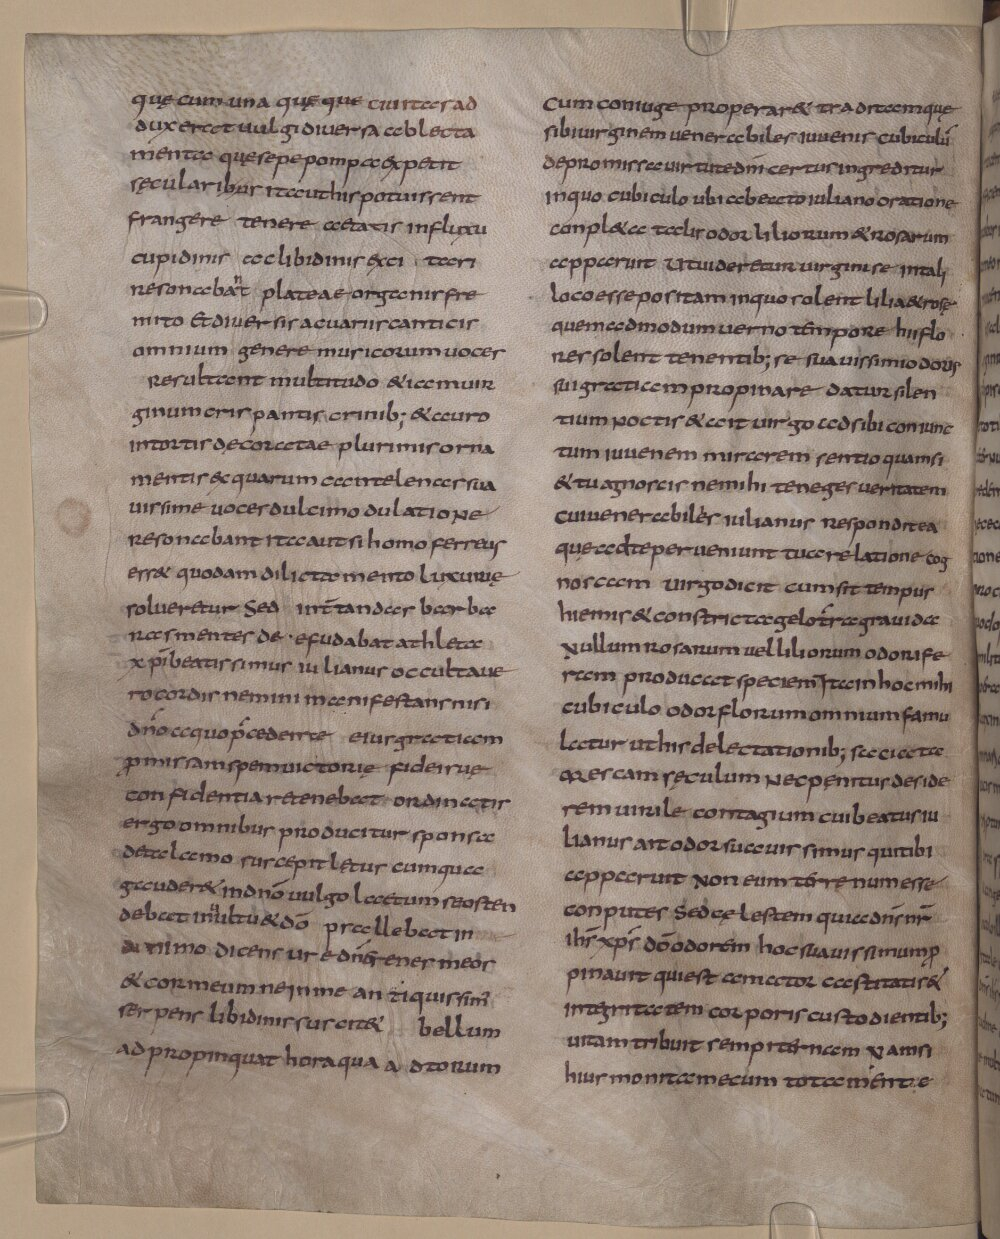 quę cum una quęque ciuitas ad
duxerat uulgi diuersa ablecta
menta que sepe pompa expetit
sęcularibus ita ut his potuissent
frangere tenere aetatis influxu
cupidinis ac libidinis exci tari
resonabant plateae organis fre
mito Et diuersis acuariis canticis
omnium genere musicorum uoces
resultant multitudo & iam uir
ginum cris pantis crinib; & auro
intortis decoratae plurimis orna
mentis & quarum
uissime uoces dulci modulatione
resonabant ita aut si homo ferreus
ess& quodam dilictamento luxurię
solueretur Sed int̄tandas barba
nas mentes de efudabat athleta
xp̄i beatissimus iulianus occultaue
ro cordis nemini manifestans nisi
dn̄o a quo p̄cedente eius gratiam
p̄missam spem uictorię fideique
confidentia retenebat ordinatis
ergo omnibus producitur sponsa
de talamo suscepit letus cumque a
gauder& in dn̄o uulgo laetum se osten
debat in uultu & dō psallebat in
animo dicens ure dn̄e renes meos
& cor meum ne in me antiquissim̄
serpens libidinis suscit& bellum
adpropinquat hora qua a dtorum
cum coniuge properar& traditamquę
sibi uirginem uenerabiles iuuenis cubiculū
de promissa uirtute dn̄i certus ingreditur
in quo cubiculo ubi ab eato iuliano oratione
conpl&a talis odor liliorum & rosarum
apparuit Ut uideretur uirgini se in tali
loco esse positam in quo solent lilia & rosę
quem ad modum uerno tempore hii flo
res solent tenentib; se suauissimi odoris
sui gratiam propinare datur silen
tium noctis & ait uirgo ad sibi coniunc
tum iuuenem miram rem sentio quam si
& tu agnoscis ne mihi teneges ueritatem
cui uenerabiles iulianus respondit ea
quę ad te perueniunt tua relatione cog
noscam uirgo dicit cum sit tempus
hiemis & constricta gelo t̄ra grauida
Nullum rosarum uel liliorum odorife
ram producat speciem Ita in hoc mihi
cubiculo odor florum omnium famu
latur ut his delectationib; saciata
arescam sęculum Nec penitus deside
rem uirile contagium cui beatus iu
lianus ait odor suauissimus qui tibi
apparuit Non eum t̄renum esse
conputes Sed cęlestem qui a dn̄s nr̄
ih̄s xp̄s dō odorem hoc suauissimum p̄
pinauit qui est amator castitatis &
integritatem corporis custodientib;
uitam tribuit sempiternam Nam si
huius monita mecum tota mente